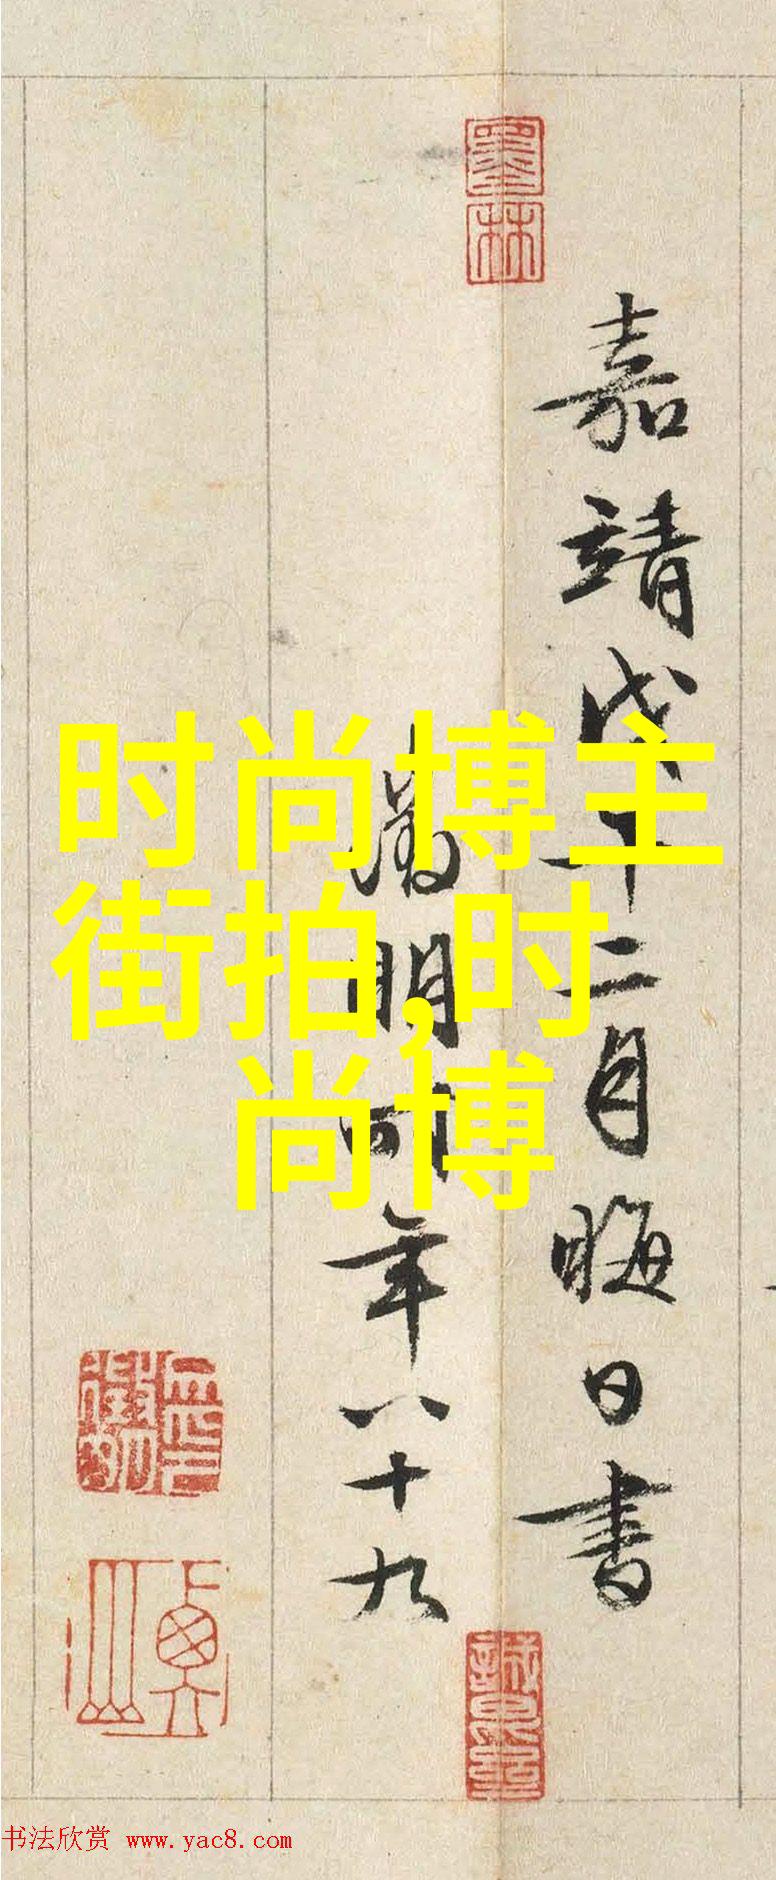 墨林
嘉靖戊午十二月晦日書
徵明時年八十九
时尚博主
街拍,时
尚博
书法欣赏 www.yac8.com